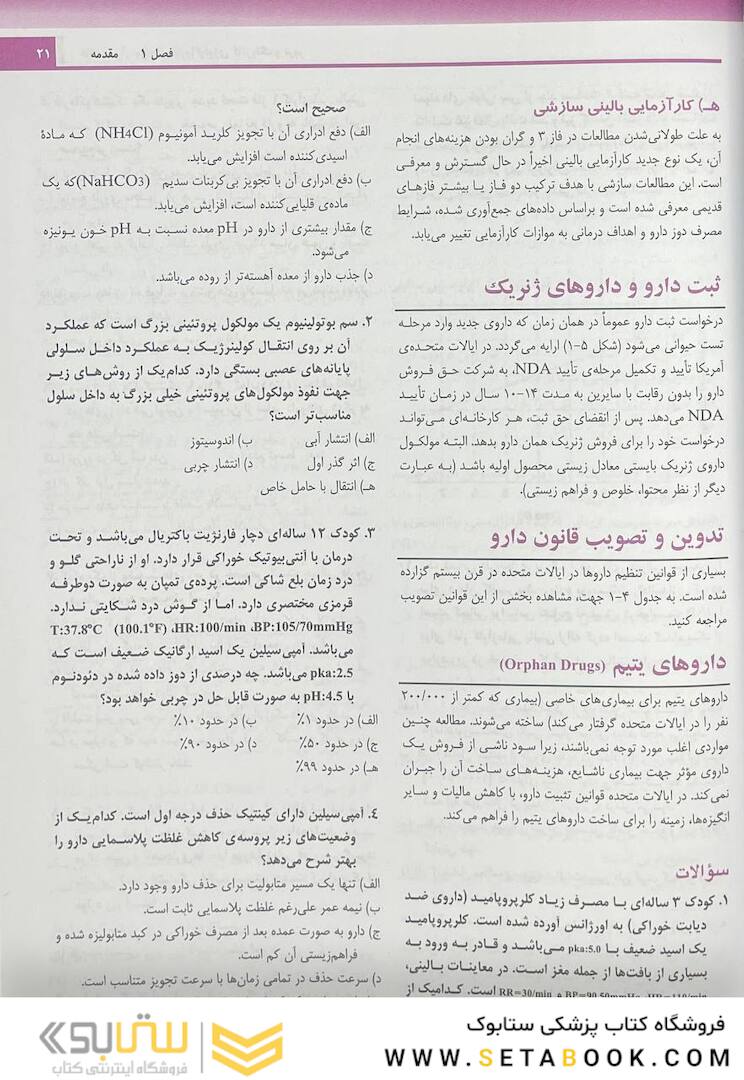 فصل ۱ مقدمه ۲۱
هـ) کارآزمایی بالینی سازشی
به علت طولانی‌شدن مطالعات در فاز ۳ و گران بودن هزینه‌های انجام
آن، یک نوع جدید کارآزمایی بالینی اخیراً در حال گسترش و معرفی
است. این مطالعات سازشی با هدف ترکیب دو فاز یا بیشتر فازهای
قدیمی معرفی شده است و براساس داده‌های جمع‌آوری شده، شرایط
مصرف دوز دارو و اهداف درمانی به موازات کارآزمایی تغییر می‌یابد.
ثبت دارو و داروهای ژنریک
درخواست ثبت دارو عموماً در همان زمان که داروی جدید وارد مرحله
تست حیوانی می‌شود (شکل ۵-۱) ارایه می‌گردد. در ایالات متحده‌ی
آمریکا تأیید و تکمیل مرحله‌ی تأیید NDA، به شرکت حق فروش
دارو را بدون رقابت با سایرین به مدت ۱۴-۱۰ سال در زمان تأیید
NDA می‌دهد. پس از انقضای حق ثبت، هر کارخانه‌ای می‌تواند
درخواست خود را برای فروش ژنریک همان دارو بدهد. البته مولکول
داروی ژنریک بایستی معادل زیستی محصول اولیه باشد (به عبارت
دیگر از نظر محتوا، خلوص و فراهم زیستی).
تدوین و تصویب قانون دارو
بسیاری از قوانین تنظیم داروها در ایالات متحده در قرن بیستم گزارده
شده است. به جدول ۴-۱ جهت، مشاهده بخشی از این قوانین تصویب
مراجعه کنید.
داروهای یتیم (Orphan Drugs)
داروهای یتیم برای بیماری‌های خاصی (بیماری که کمتر از ۲۰۰/۰۰۰
نفر را در ایالات متحده گرفتار می‌کند) ساخته می‌شوند. مطالعه چنین
مواردی اغلب مورد توجه نمی‌باشند، زیرا سود ناشی از فروش یک
داروی مؤثر جهت بیماری ناشایع، هزینه‌های ساخت آن را جبران
نمی‌کند. در ایالات متحده قوانین تثبیت دارو، با کاهش مالیات و سایر
انگیزه‌ها، زمینه را برای ساخت داروهای یتیم را فراهم می‌کند.
سؤالات
۱. کودک ۳ ساله‌ای با مصرف زیاد کلرپروپامید (داروی ضد
دیابت خوراکی) به اورژانس آورده شده است. کلرپروپامید
یک اسید ضعیف با pka:5.0 می‌باشد و قادر به ورود به
بسیاری از بافت‌ها از جمله مغز است. در معاینات بالینی،
HR=110/min، BP=90.50mmHg و RR=30/min است. کدامیک از
صحیح است؟
الف) دفع ادراری آن با تجویز کلرید آمونیوم (NH4Cl) که ماده‌
اسیدی‌کننده است افزایش می‌یابد.
ب) دفع ادراری آن با تجویز بی‌کربنات سدیم (NaHCO3)که یک
ماده‌ی قلیایی‌کننده است، افزایش می‌یابد.
ج) مقدار بیشتری از دارو در PH معده نسبت به PH خون یونیزه
می‌شود.
د) جذب دارو از معده آهسته‌تر از روده می‌باشد.
۲. سم بوتولینیوم یک مولکول پروتئینی بزرگ است که عملکرد
آن بر روی انتقال کولینرژیک به عملکرد داخل سلولی
پایانه‌های عصبی بستگی دارد. کدام‌یک از روش‌های زیر
جهت نفوذ مولکول‌های پروتئینی خیلی بزرگ به داخل سلول
مناسب‌تر است؟
الف) انتشار آبی ب) اندوسیتوز
ج) اثر گذر اول د) انتشار چربی
هـ) انتقال با حامل خاص
۳. کودک ۱۲ ساله‌ای دچار فارنژیت باکتریال می‌باشد و تحت
درمان با آنتی‌بیوتیک خوراکی قرار دارد. او از ناراحتی گلو و
درد زمان بلع شاکی است. پرده‌ی تمپان به صورت دوطرفه
قرمزی مختصری دارد. اما از گوش درد شکایتی ندارد.
T:37.8°C (100.1°F) ،HR:100/min ،BP:105/70mmHg
می‌باشد. آمپی‌سیلین یک اسید ارگانیک ضعیف است که
pka:2.5 می‌باشد. چه درصدی از دوز داده شده در دئودنوم
با pH:4.5 به صورت قابل حل در چربی خواهد بود؟
الف) در حدود ۱٪ ب) در حدود ۱۰٪
ج) در حدود ۵۰٪ د) در حدود ۹۰٪
هـ) در حدود ۹۹٪
۴. آمپی‌سیلین دارای کینتیک حذف درجه اول است. کدام‌یک از
وضعیت‌های زیر پروسه‌ی کاهش غلظت پلاسمایی دارو را
بهتر شرح می‌دهد؟
الف) تنها یک مسیر متابولیت برای حذف دارو وجود دارد.
ب) نیمه عمر علی‌رغم غلظت پلاسمایی ثابت است.
ج) دارو به صورت عمده بعد از مصرف خوراکی در کبد متابولیزه شده و
فراهم‌زیستی آن کم است.
د) سرعت حذف در تمامی زمان‌ها با سرعت تجویز متناسب است.
فروشگاه کتاب پزشکی ستابوک
WWW.SETABOOK.COM
ستابوک
فروشگاه اینترنتی کتاب